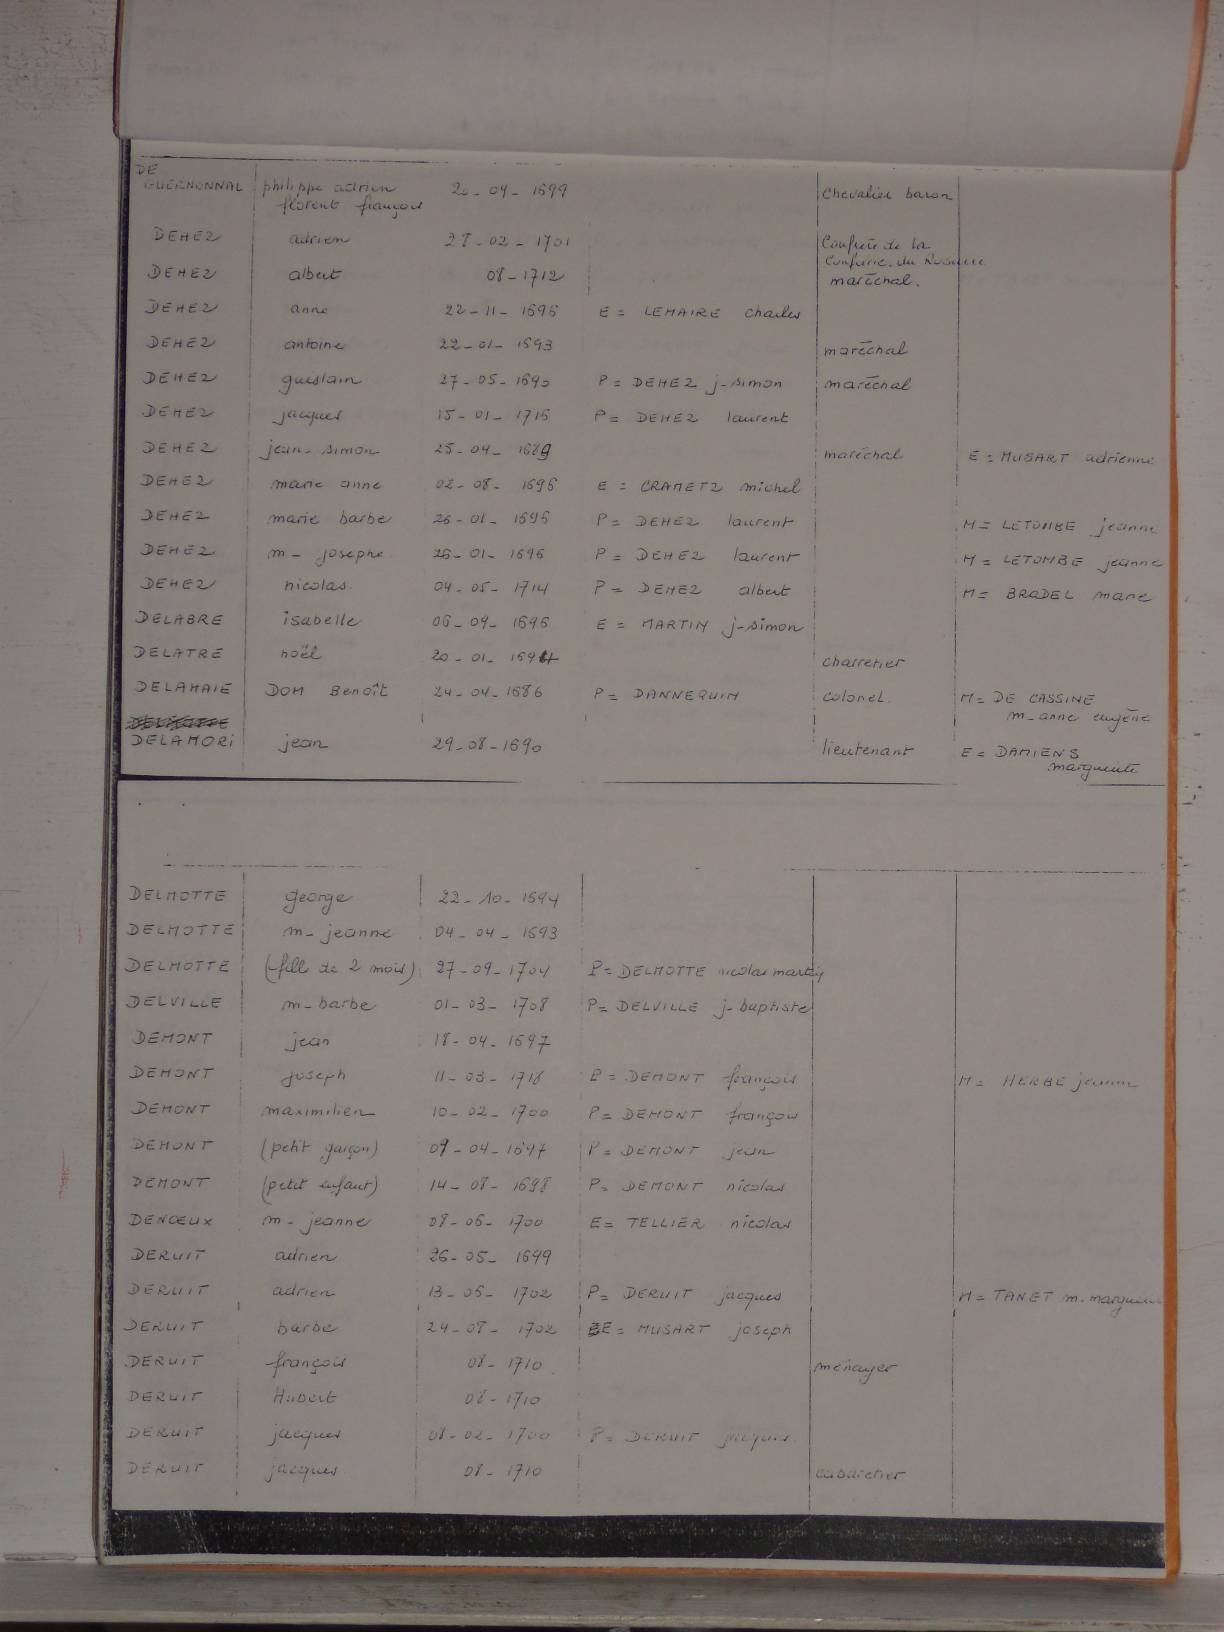 DE
GUERNONNAL philippe adrien 20-09-1699 chevalier baron
florent françois
DEHEZ adrien 28-02-1701 Confrère de la
Confrérie du Rosaire
DEHEZ albert 08-1712 maréchal.
DEHEZ anne 22-11-1696 E = LEMAIRE charles
DEHEZ antoine 22-01-1693 maréchal
DEHEZ gueslain 27-05-1690 P = DEHEZ j-simon maréchal
DEHEZ jacques 15-01-1716 P = DEHEZ laurent
DEHEZ jean-simon 25-04-1689 maréchal E = MUSART adrienne
DEHEZ marie anne 02-08-1696 E = CRAMETZ michel
DEHEZ marie barbe 26-01-1696 P = DEHEZ laurent M = LETOMBE jeanne
DEHEZ m-josephe 26-01-1696 P = DEHEZ laurent M = LETOMBE jeanne
DEHEZ nicolas. 04-05-1714 P = DEHEZ albert M = BRODEL marie
DELABRE isabelle 06-09-1696 E = MARTIN j-simon
DELATRE noël 20-01-1694 charretier
DELAHAIE DOM Benoît 24-04-1686 P = DANNEQUIN colonel. M = DE CASSINE
m-anne eugène
DELAMORI jean 29-08-1690 lieutenant E = DAMIENS
marguerite
DELMOTTE george 22-10-1694
DELMOTTE m-jeanne 04-04-1693
DELMOTTE (fille de 2 mois) 27-09-1704 P = DELMOTTE nicolas martin
DELVILLE m-barbe 01-03-1708 P = DELVILLE j-baptiste
DEMONT jean 18-04-1697
DEMONT joseph 11-03-1718 P = DEMONT françois M = HERBE jeanne
DEMONT maximilien 10-02-1700 P = DEMONT françois
DEMONT (petit garçon) 09-04-1697 P = DEMONT jean
DEMONT (petit enfant) 14-08-1698 P = DEMONT nicolas
DENŒUX m-jeanne 08-06-1700 E = TELLIER nicolas
DERUIT adrien 26-05-1699
DERUIT adrien 13-05-1702 P = DERUIT jacques M = TANET m. marguerite
DERUIT barbe 24-08-1702 E = MUSART joseph
DERUIT françois 08-1710 ménager
DERUIT Hubert 08-1710
DERUIT jacques 08-02-1700 P = DERUIT jacques.
DERUIT jacques. 08-1710 cabaretier